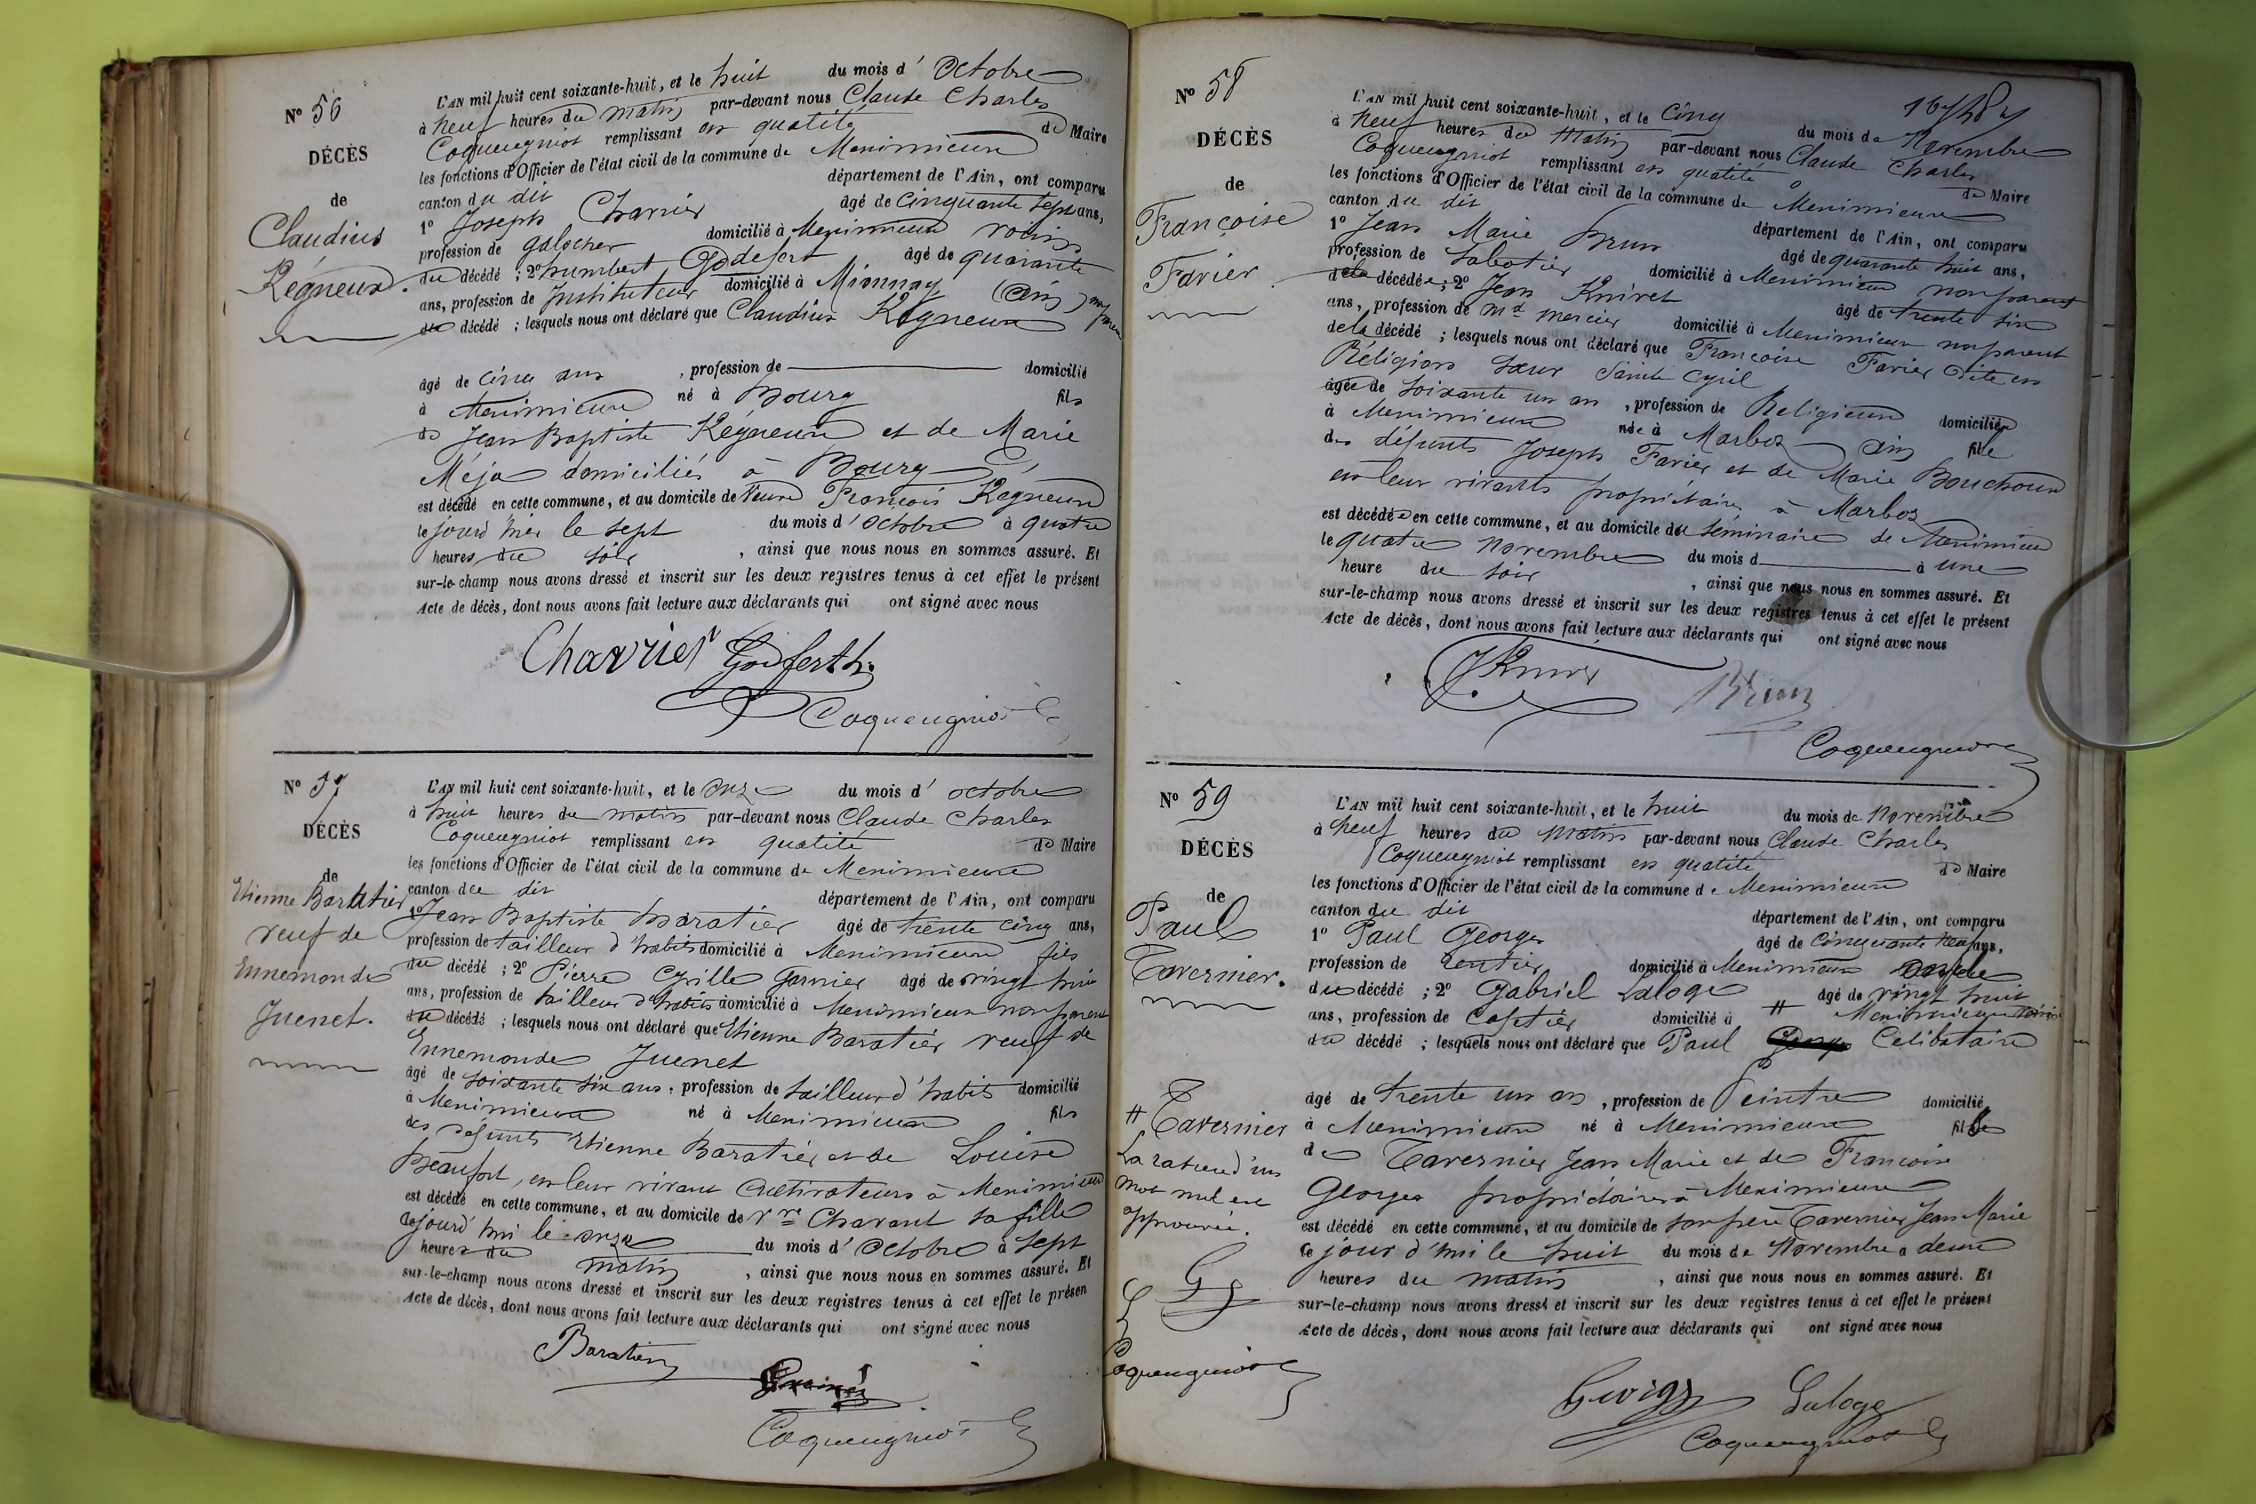 N° 56
DÉCÈS
de
Claudius
Régneux.
L'AN mil huit cent soixante-huit, et le huit du mois d' Octobre
à neuf heures du matin par-devant nous Claude Charles
Coquengniot remplissant en qualité de Maire
les fonctions d'Officier de l'état civil de la commune de Meximieux
canton du dit département de l'Ain, ont comparu
1° Joseph Charrier âgé de Cinquante Sept ans,
profession de galocher domicilié à Meximieux voisin
du décédé ; 2° humbert Godefert âgé de quarante
ans, profession de Instituteur domicilié à Mionnay (Ain) non parent
du décédé ; lesquels nous ont déclaré que Claudius Régneux
âgé de Cinq ans , profession de domicilié
à Meximieux né à Bourg fils
de Jean Baptiste Régneux et de Marie
Méja domiciliés à Bourg
est décédé en cette commune, et au domicile de Veuve François Régneux
le jour d'hier le sept du mois d' octobre à quatre
heures du soir , ainsi que nous nous en sommes assuré. Et
sur-le-champ nous avons dressé et inscrit sur les deux registres tenus à cet effet le présent
Acte de décès, dont nous avons fait lecture aux déclarants qui ont signé avec nous
Charrier Godferth
Coquengniot
N° 57
DÉCÈS
de
Etienne Baratier
veuf de
Ennemonde
Juenet.
L'AN mil huit cent soixante-huit, et le onze du mois d' octobre
à huit heures du matin par-devant nous Claude Charles
Coquengniot remplissant en qualité de Maire
les fonctions d'Officier de l'état civil de la commune de Meximieux
canton du dit département de l'Ain, ont comparu
1° Jean Baptiste Baratier âgé de trente cinq ans,
profession de tailleur d'habits domicilié à Meximieux fils
du décédé ; 2° Pierre Cyrille Garnier âgé de vingt huit
ans, profession de tailleur d'habits domicilié à Meximieux non parent
du décédé ; lesquels nous ont déclaré que Etienne Baratier veuf de
Ennemonde Juenet
âgé de soixante six ans , profession de tailleur d'habits domicilié
à Meximieux né à Meximieux fils
des défunts Etienne Baratier et de Louise
Beaufort, en leur vivant Cultivateurs à Meximieux
est décédé en cette commune, et au domicile de Vve Chavant sa fille
ce jourd'hui le onze du mois d' Octobre à Sept
heures du matin , ainsi que nous nous en sommes assuré. Et
sur-le-champ nous avons dressé et inscrit sur les deux registres tenus à cet effet le présen
Acte de décès, dont nous avons fait lecture aux déclarants qui ont signé avec nous
Baratier
Coquengniot
N° 58
DÉCÈS
de
Françoise
Favier
L'AN mil huit cent soixante-huit, et le Cinq du mois de Novembre
à neuf heures du Matin par-devant nous Claude Charles
Coquengniot remplissant en qualité de Maire
les fonctions d'Officier de l'état civil de la commune de Meximieux
canton du dit département de l'Ain, ont comparu
1° Jean Marie Brun âgé de quarante huit ans,
profession de Sabotier domicilié à Meximieux non parent
dela décédée ; 2° Jean Knivet âgé de trente six
ans, profession de Md mercier domicilié à Meximieux non parent
dela décédé ; lesquels nous ont déclaré que Françoise Favier dite en
Réligion Sœur Sainte Cyril
âgée de Soixante un an , profession de Religieuse domiciliée
à Meximieux née à Marboz Ain fille
des défunts Joseph Favier et de Marie Bouchoux
en leur vivants propriétaires à Marboz
est décédée en cette commune, et au domicile du séminaire de Meximieux
le quatre novembre du mois d à une
heure du soir , ainsi que nous nous en sommes assuré. Et
sur-le-champ nous avons dressé et inscrit sur les deux registres tenus à cet effet le présent
Acte de décès, dont nous avons fait lecture aux déclarants qui ont signé avec nous
Brun
Coquengniot
N° 59
DÉCÈS
de
Paul
Tavernier.
# Tavernier
La rature d'un
mot nul est
approuvée.
Coquengniot
L'AN mil huit cent soixante-huit, et le huit du mois de Novembre
à neuf heures du Matin par-devant nous Claude Charles
Coquengniot remplissant en qualité de Maire
les fonctions d'Officier de l'état civil de la commune de Meximieux
canton du dit département de l'Ain, ont comparu
1° Paul Georges âgé de Cinquante neuf ans,
profession de rentier domicilié à Meximieux oncle
du décédé ; 2° Gabriel Laloge âgé de vingt huit
ans, profession de Cafetier domicilié à # Meximieux voisin
du décédé ; lesquels nous ont déclaré que Paul Célibataire
âgé de trente un an , profession de Peintre domicilié
à Meximieux né à Meximieux fils
de Tavernier Jean Marie et de Francoise
Georges propriétaires à Meximieux
est décédé en cette commune, et au domicile de son père Tavernier Jean Marie
ce jour d'hui le huit du mois de Novembre à deux
heures du matin , ainsi que nous nous en sommes assuré. Et
sur-le-champ nous avons dressé et inscrit sur les deux registres tenus à cet effet le présent
Acte de décès, dont nous avons fait lecture aux déclarants qui ont signé avec nous
Laloge
Coquengniot